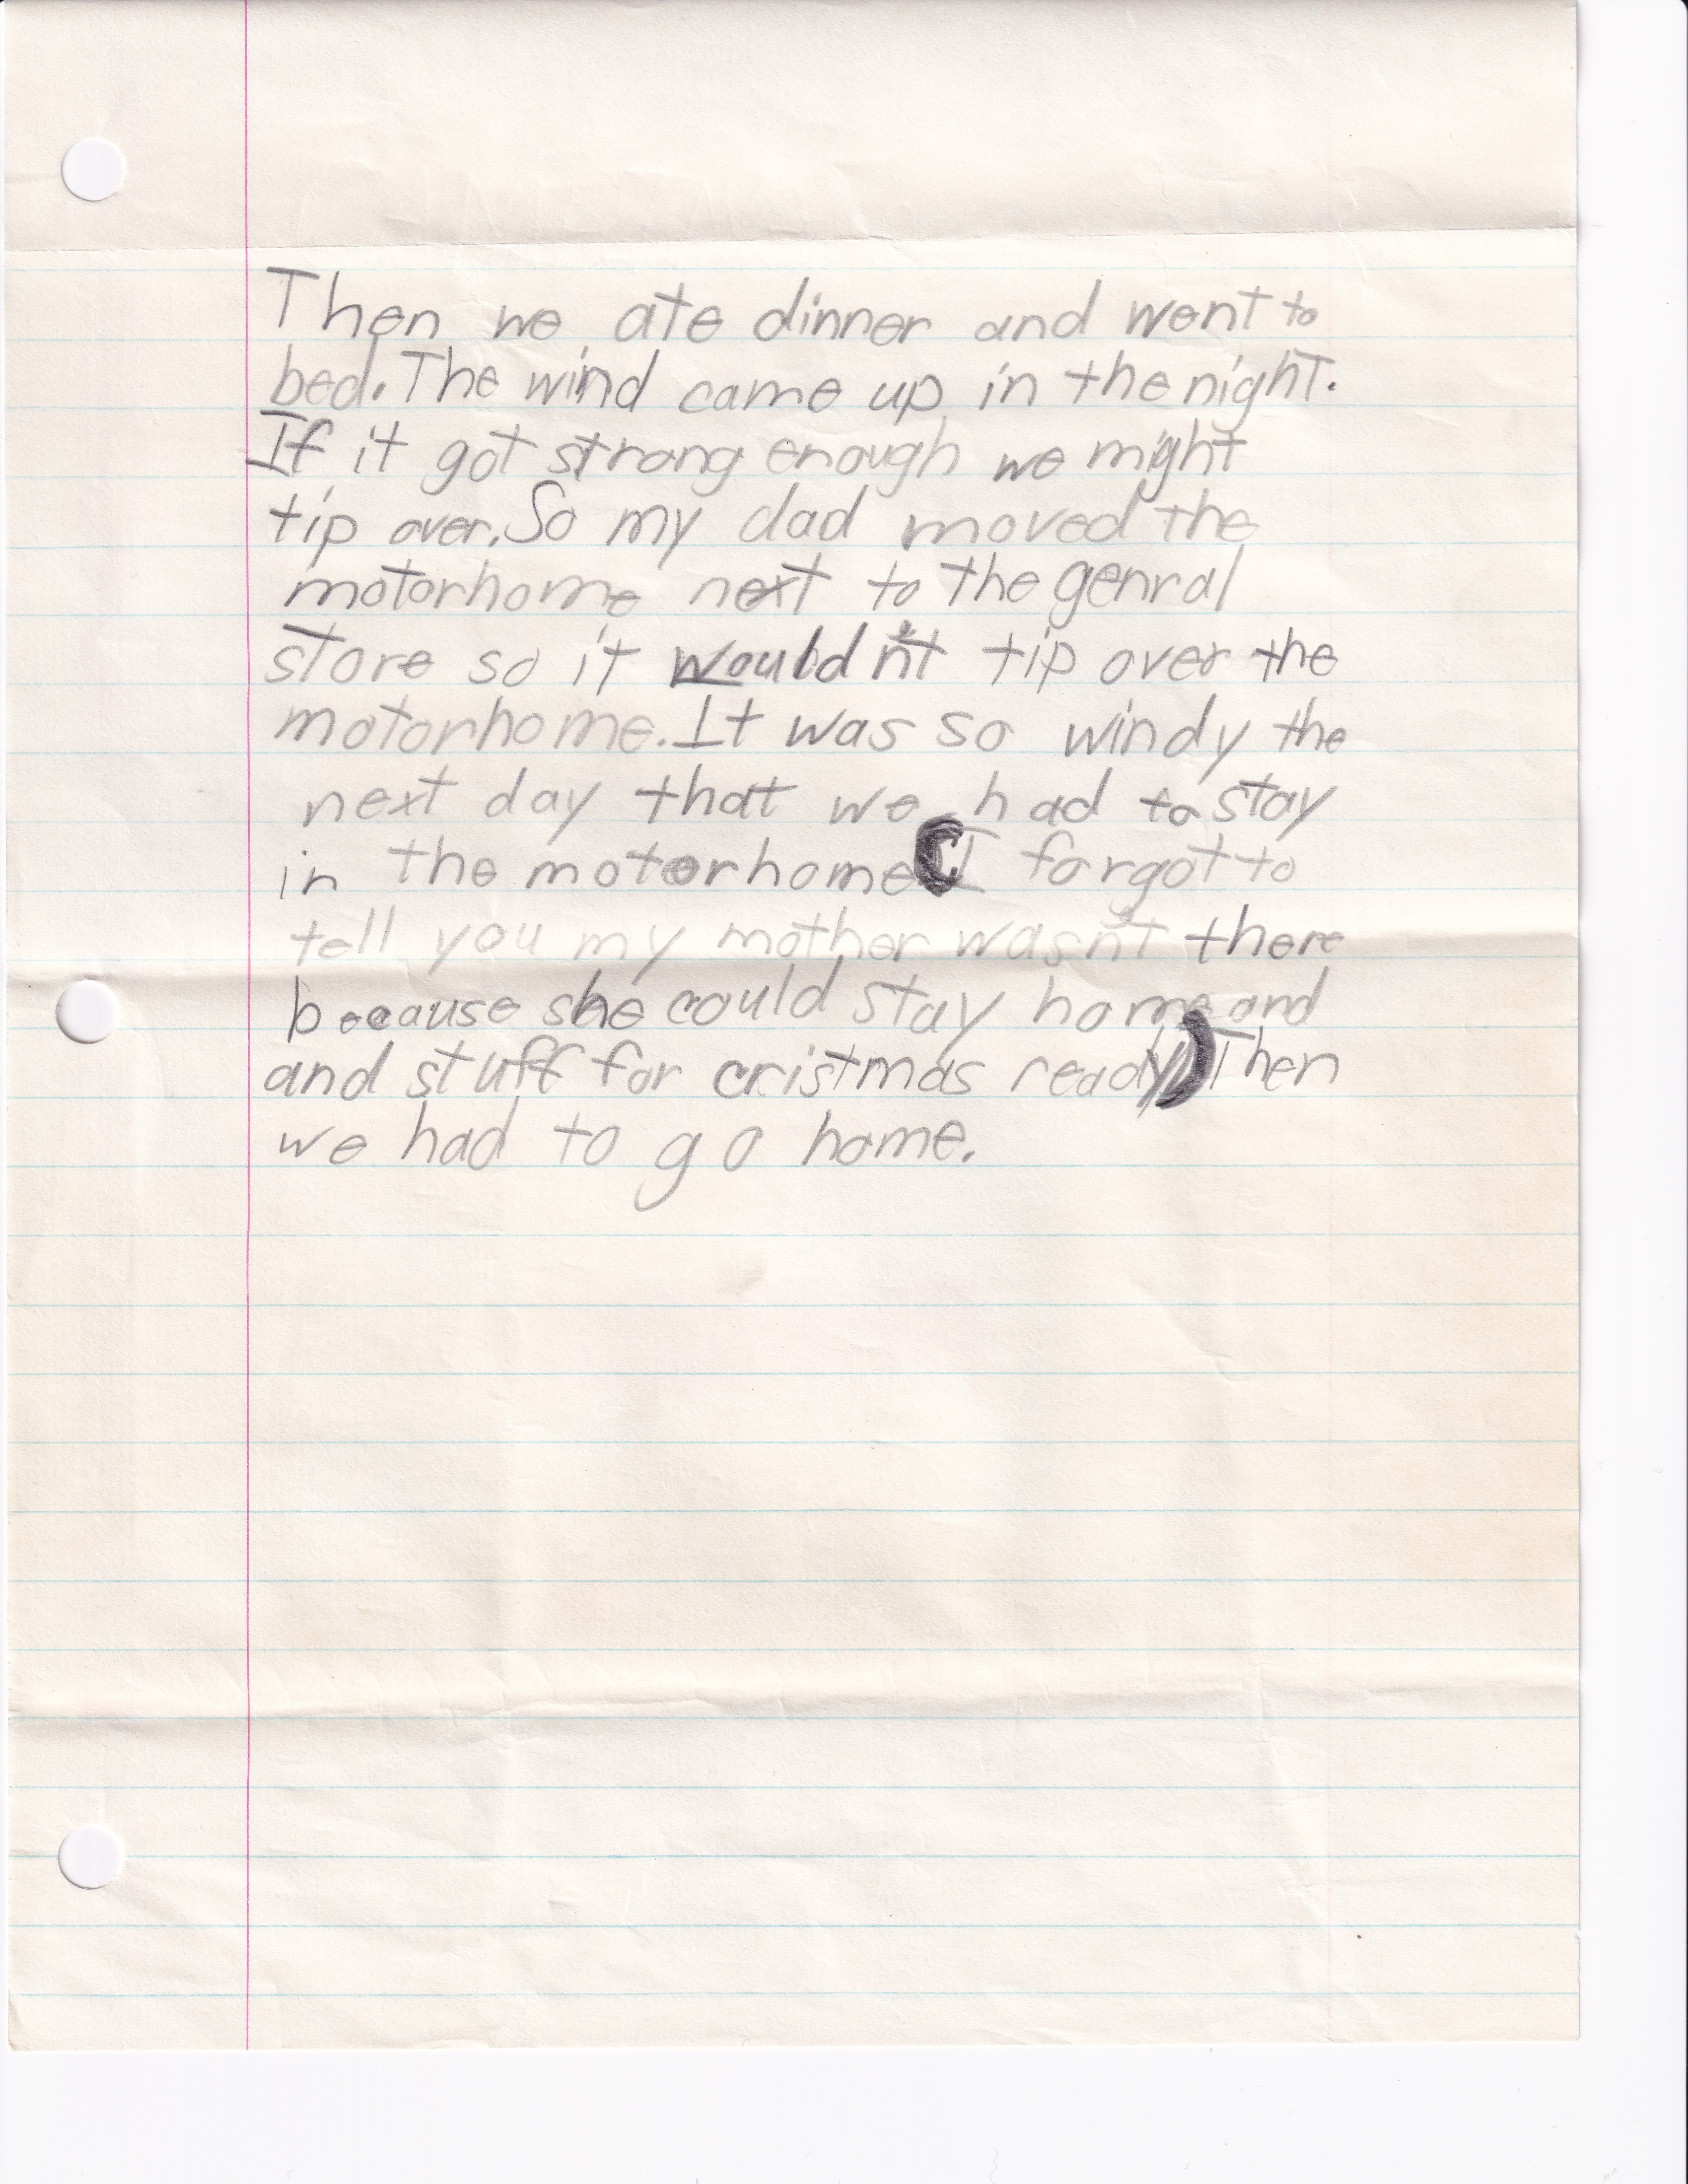 Then we ate dinner and went to
bed. The wind came up in the night.
If it got strong enough we might
tip over. So my dad moved the
motorhome next to the genral
store so it wouldn't tip over the
motorhome. It was so windy the
next day that we had to stay
in the motorhome (I forgot to
tell you my mother wasn't there
because she could stay home and
and stuff for cristmas ready) Then
we had to go home.